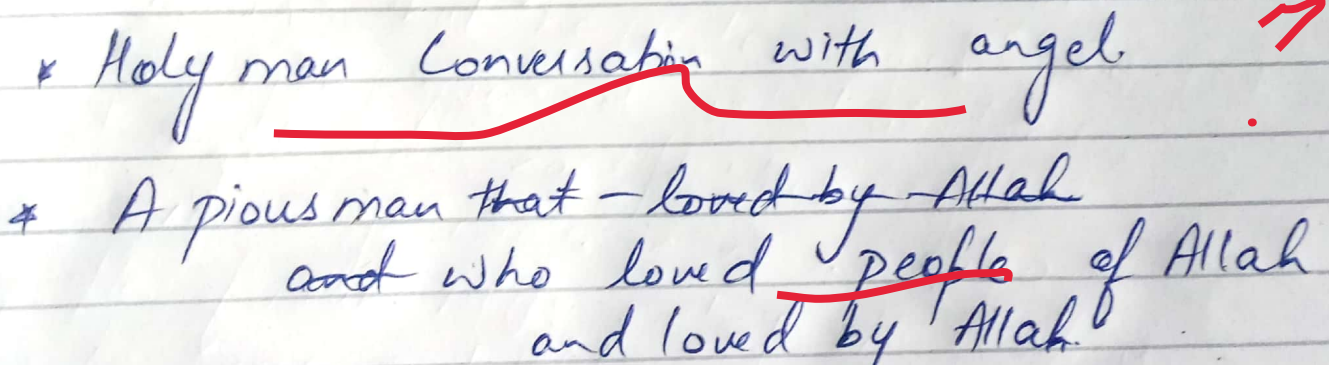 * Holy man Conversation with angel.
* A pious man that - loved by Allah
and who loved people of Allah
and loved by Allah.